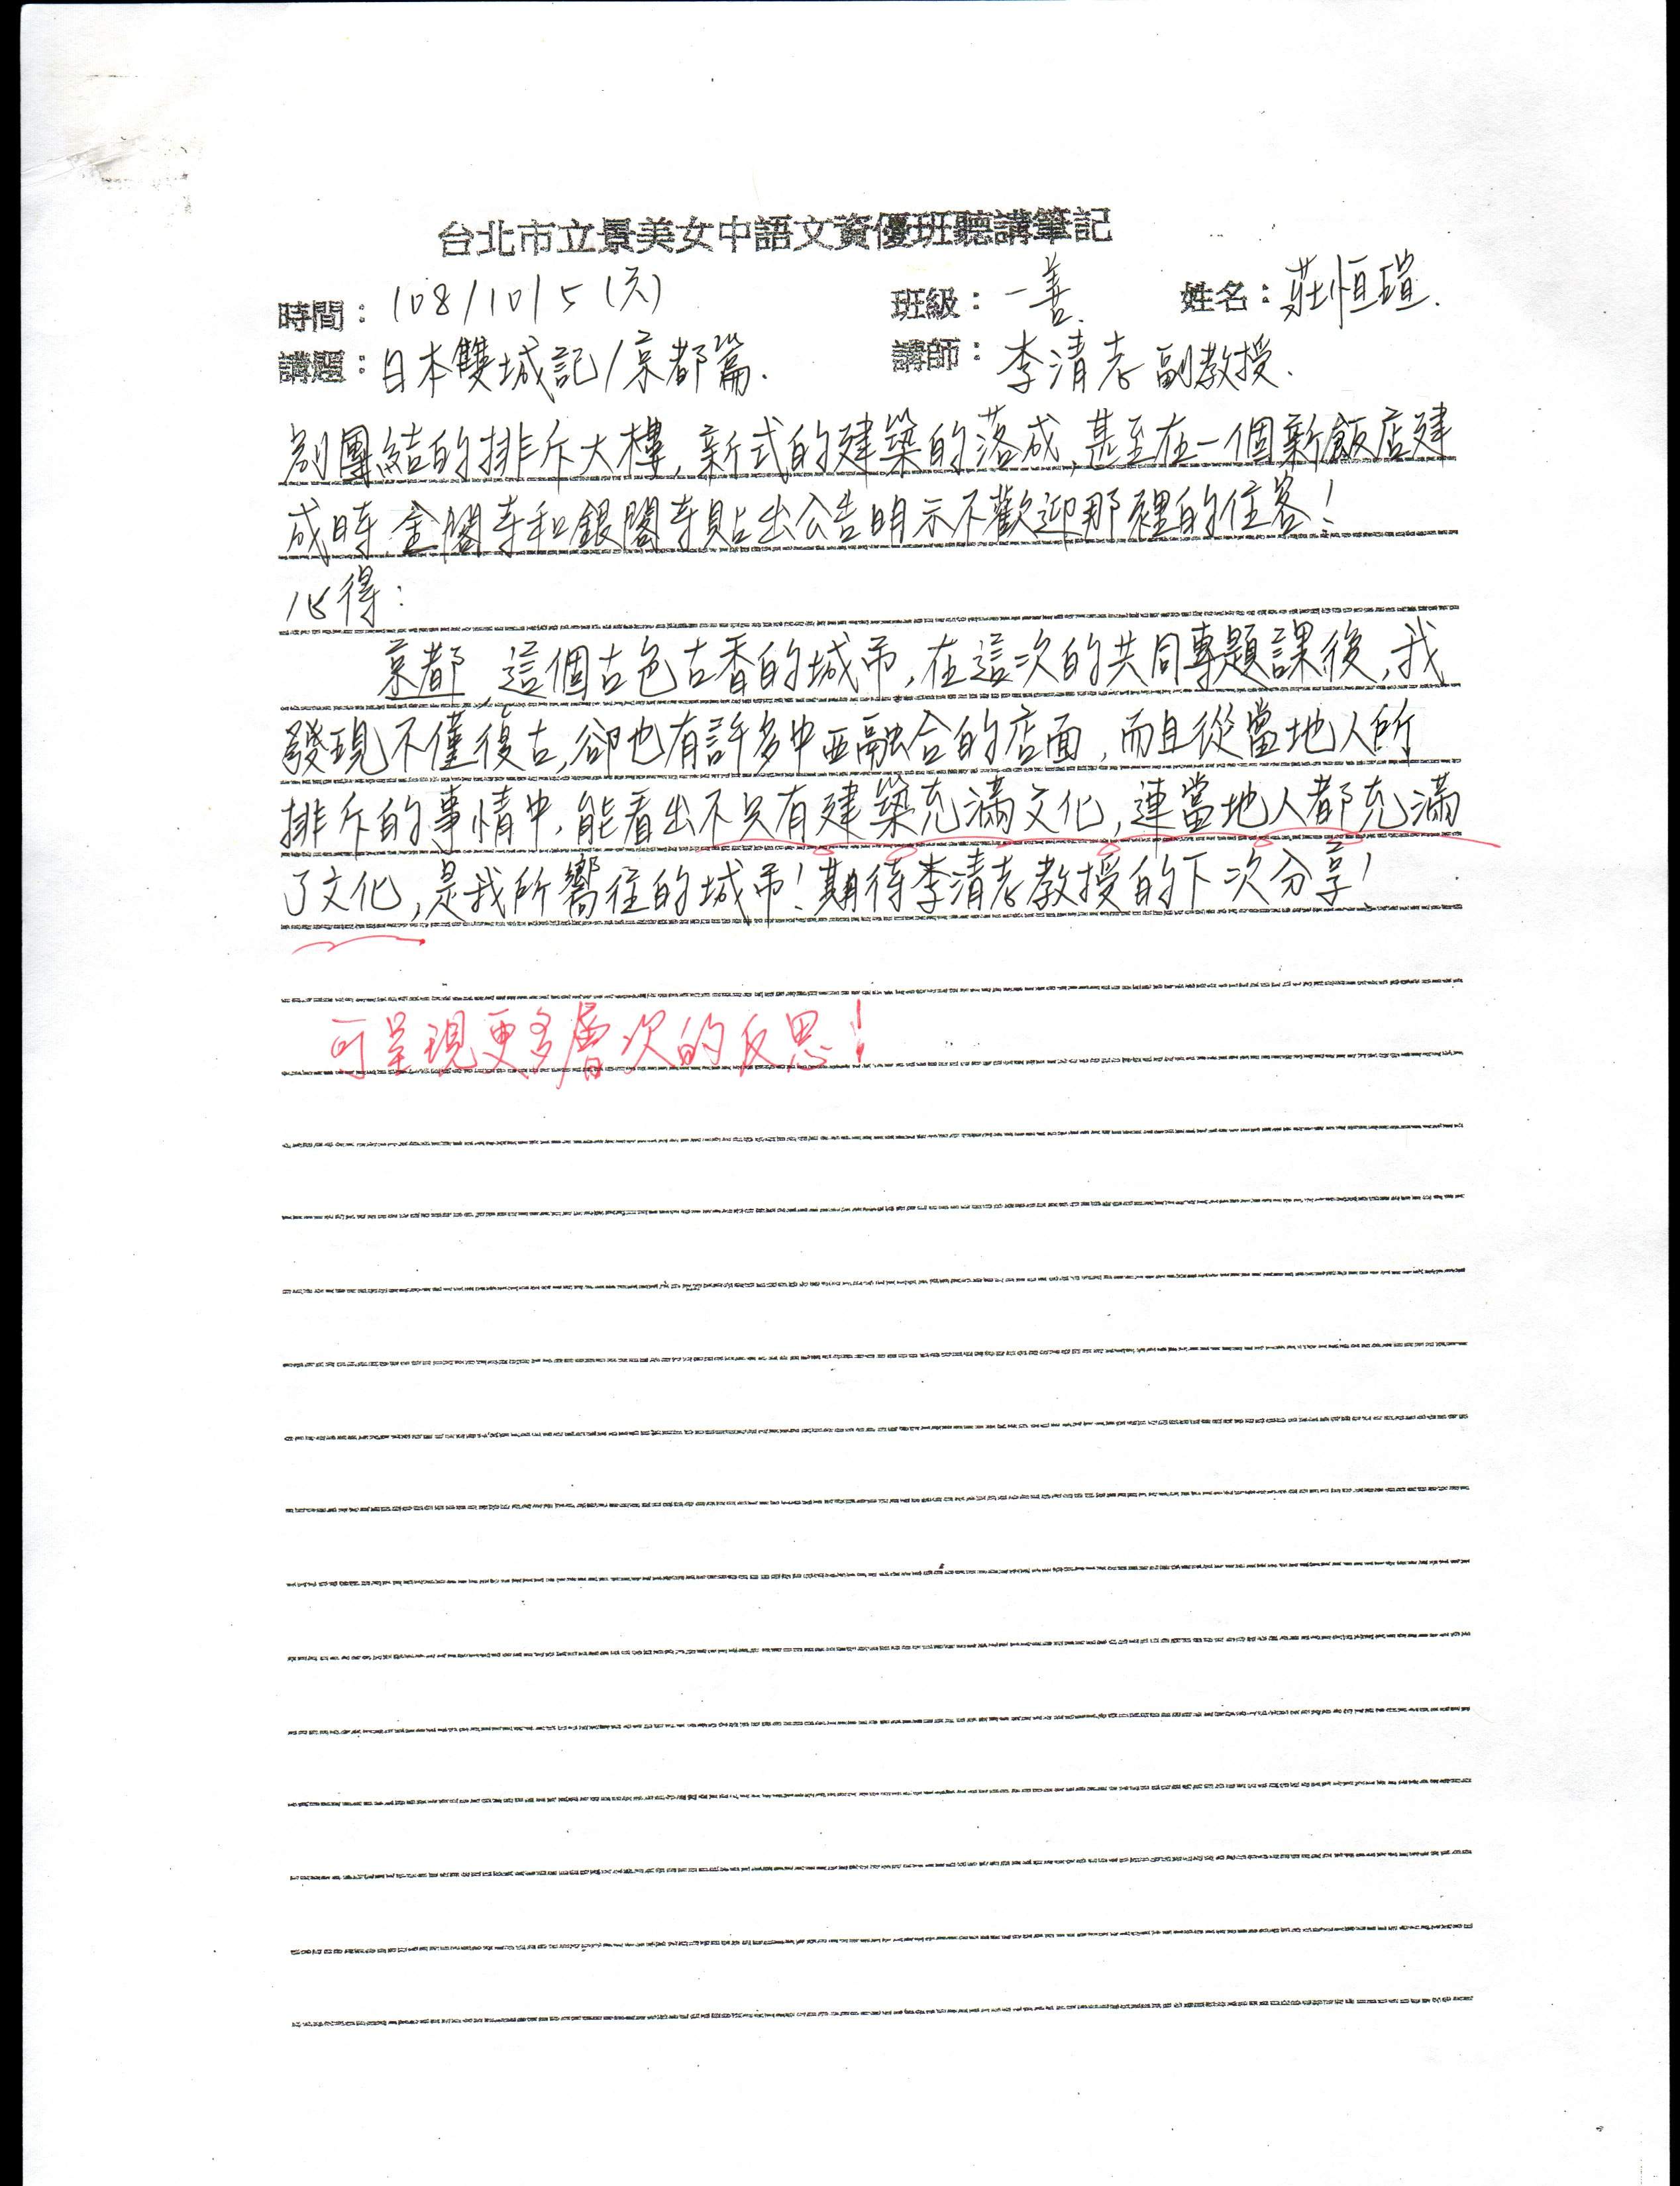 台北市立景美女中語文資優班聽講筆記
時間：108/10/5(六) 班級：一善. 姓名：莊恒瑄.
講題：日本雙城記/京都篇. 講師：李清志副教授.
團結的排斥大樓,新式的建築的落成,甚至在一個新飯店建
成時,金閣寺和銀閣寺貼出公告明示不歡迎那裡的住客!
心得:
京都,這個古色古香的城市,在這次的共同專題課後,我
發現不僅復古,卻也有許多中西融合的店面,而且從當地人所
排斥的事情中,能看出不只有建築充滿文化,連當地人都充滿
了文化,是我所嚮往的城市!期待李清志教授的下次分享!
可呈現更多層次的反思!